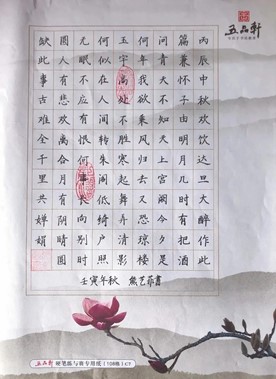 五品轩
丙辰中秋欢饮达旦大醉作此
篇兼怀子由明月几时有把酒
问青天不知天上宫阙今夕是
何年我欲乘风归去又恐琼楼
玉宇高处不胜寒起舞弄清影
何似在人间转朱阁低绮户照
无眠不应有恨何事长向别时
圆人有悲欢离合月有阴晴圆
缺此事古难全千里共婵娟
壬寅年秋 熊艺菲書
五品轩 硬笔练与赛专用纸(108格)CY